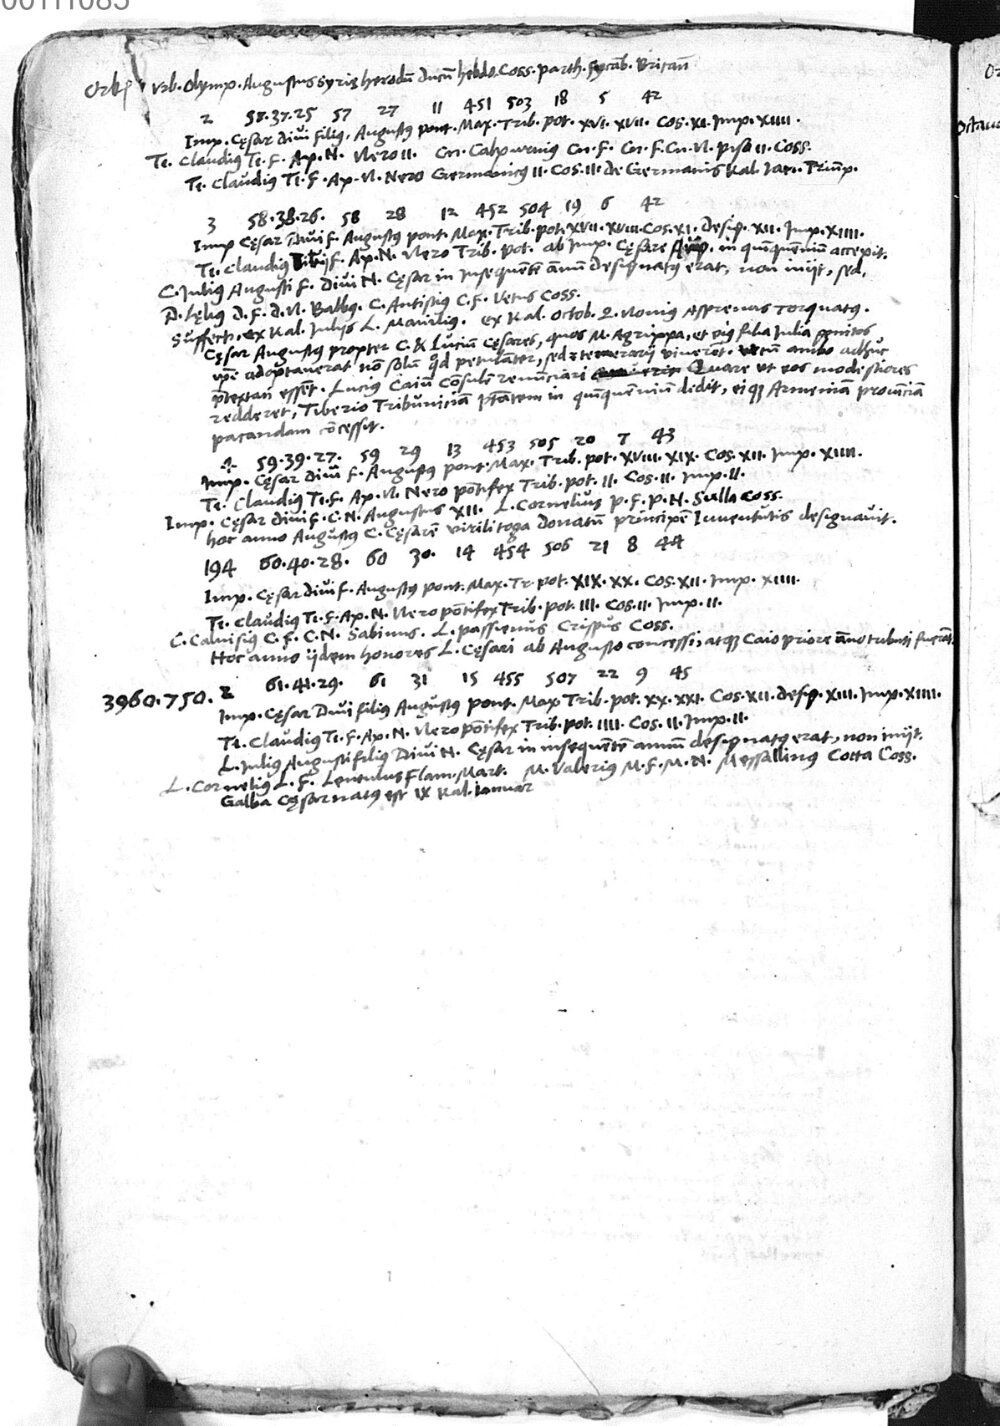 00111083
Orbis Vrb. Olymp. Augustus Syriȩ herodū Ducū hebdo. Coss. parth. Hyrab. Britañ
2 58.37.25 57 27 11 451 503 18 5 42
Imp. Cȩsar Divi filiꝯ. Augustꝯ pont. Max. Trib. pot. XVI. XVII. Cos. XI. Imp. XIIII.
Ti. Claudiꝯ Ti. F. Ap. N. Nero II. Cn. Calpurniꝯ Cn. F. Cn. F. Cn. N. Piso II. Coss.
Ti. Claudiꝯ Ti. F. Ap. N. Nero Germanicꝯ II. Cos. III. de Germanis Kal. Ian. Triūp.
3 58.38.26. 58 28 12 452 504 19 6 42
Imp Cȩsar Divi F. Augustꝯ pont. Max. Trib. pot. XVII. XVIII. Cos. XI. Desig. XII. Imp. XIIII.
Ti. Claudiꝯ Ti. F. Ap. N. Nero Trib. pot. ab Imp. Cȩsare Aug. in quinquēniū accepit.
C. Juliꝯ Augusti F. Divi N. Cȩsar in insequentē annū designatꝯ erat, non iniit, sed,
D. Lȩliꝯ D. F. D. N. Balbꝯ. C. Antistiꝯ C. F. Vetus Coss.
Suffecti, ex Kal. Julijs L. Maniliꝯ. ex Kal. Octob. Q. Noniꝯ Asprenas Torquatꝯ.
Cȩsar Augustꝯ propter C. & Luciū Cȩsares, quos M. Agrippa, et eiꝯ filia Julia genitos
ipse adoptaverat nō solū qđ petulāter, sed & temerarij viverēt. verū ambo adhuc
p̄textati essēt. Luciꝯ Caiū cōsulē renūciari Quare ut eos modestiores
redderet, Tiberio Tribuniciā p̄tatem in quinquēniū dedit, eiqꝫ Armeniam provinciā
pacandam cōcessit.
4 59.39.27. 59 29 13 453 505 20 7 43
Imp. Cȩsar Divi F. Augustꝯ pont. Max. Trib. pot. XVIII. XIX. Cos. XII. Imp. XIIII.
Ti. Claudiꝯ Ti. F. Ap. N. Nero pōtifex Trib. pot. II. Cos. II. Imp. II.
Imp. Cȩsar Divi F. C. N. Augustus XII. L. Corneliꝯ P. F. P. N. Sulla Coss.
hoc anno Augustꝯ C. Cȩsarē virili toga donatū principē Iuventutis designavit.
194 60.40.28. 60 30. 14 454 506 21 8 44
Imp. Cȩsar Divi F. Augustꝯ pont. Max. Tr pot. XIX. XX. Cos. XII. Imp. XIIII.
Ti. Claudiꝯ Ti. F. Ap. N. Nero pōtifex Trib. pot. III. Cos. II. Imp. II.
C. Calvisiꝯ C. F. C. N. Sabinus. L. Passienus Crispꝯ Coss.
Hoc anno ijdem honores L. Cȩsari ab Augusto concessi, atqꝫ Caio priore āno tributi fuerāt
3960.750. 2 61.41.29. 61 31 15 455 507 22 9 45
Imp. Cȩsar Divi filiꝯ Augustꝯ pont. Max Trib. pot. XX. XXI. Cos. XII. desig. XIII. Imp. XIIII.
Ti. Claudiꝯ Ti. F. Ap. N. Nero pōtifex Trib. pot. IIII. Cos. II. Imp. II.
L. Juliꝯ Augusti filiꝯ Divi N. Cȩsar in insequētē annum designatꝯ erat, non iniit.
L. Corneliꝯ L. F. Lentulus Flam. Mart. M. Valeriꝯ M. F. M. N. Messallinꝯ Cotta Coss.
Galba Cȩsar natꝯ est IX Kal. Ianuar